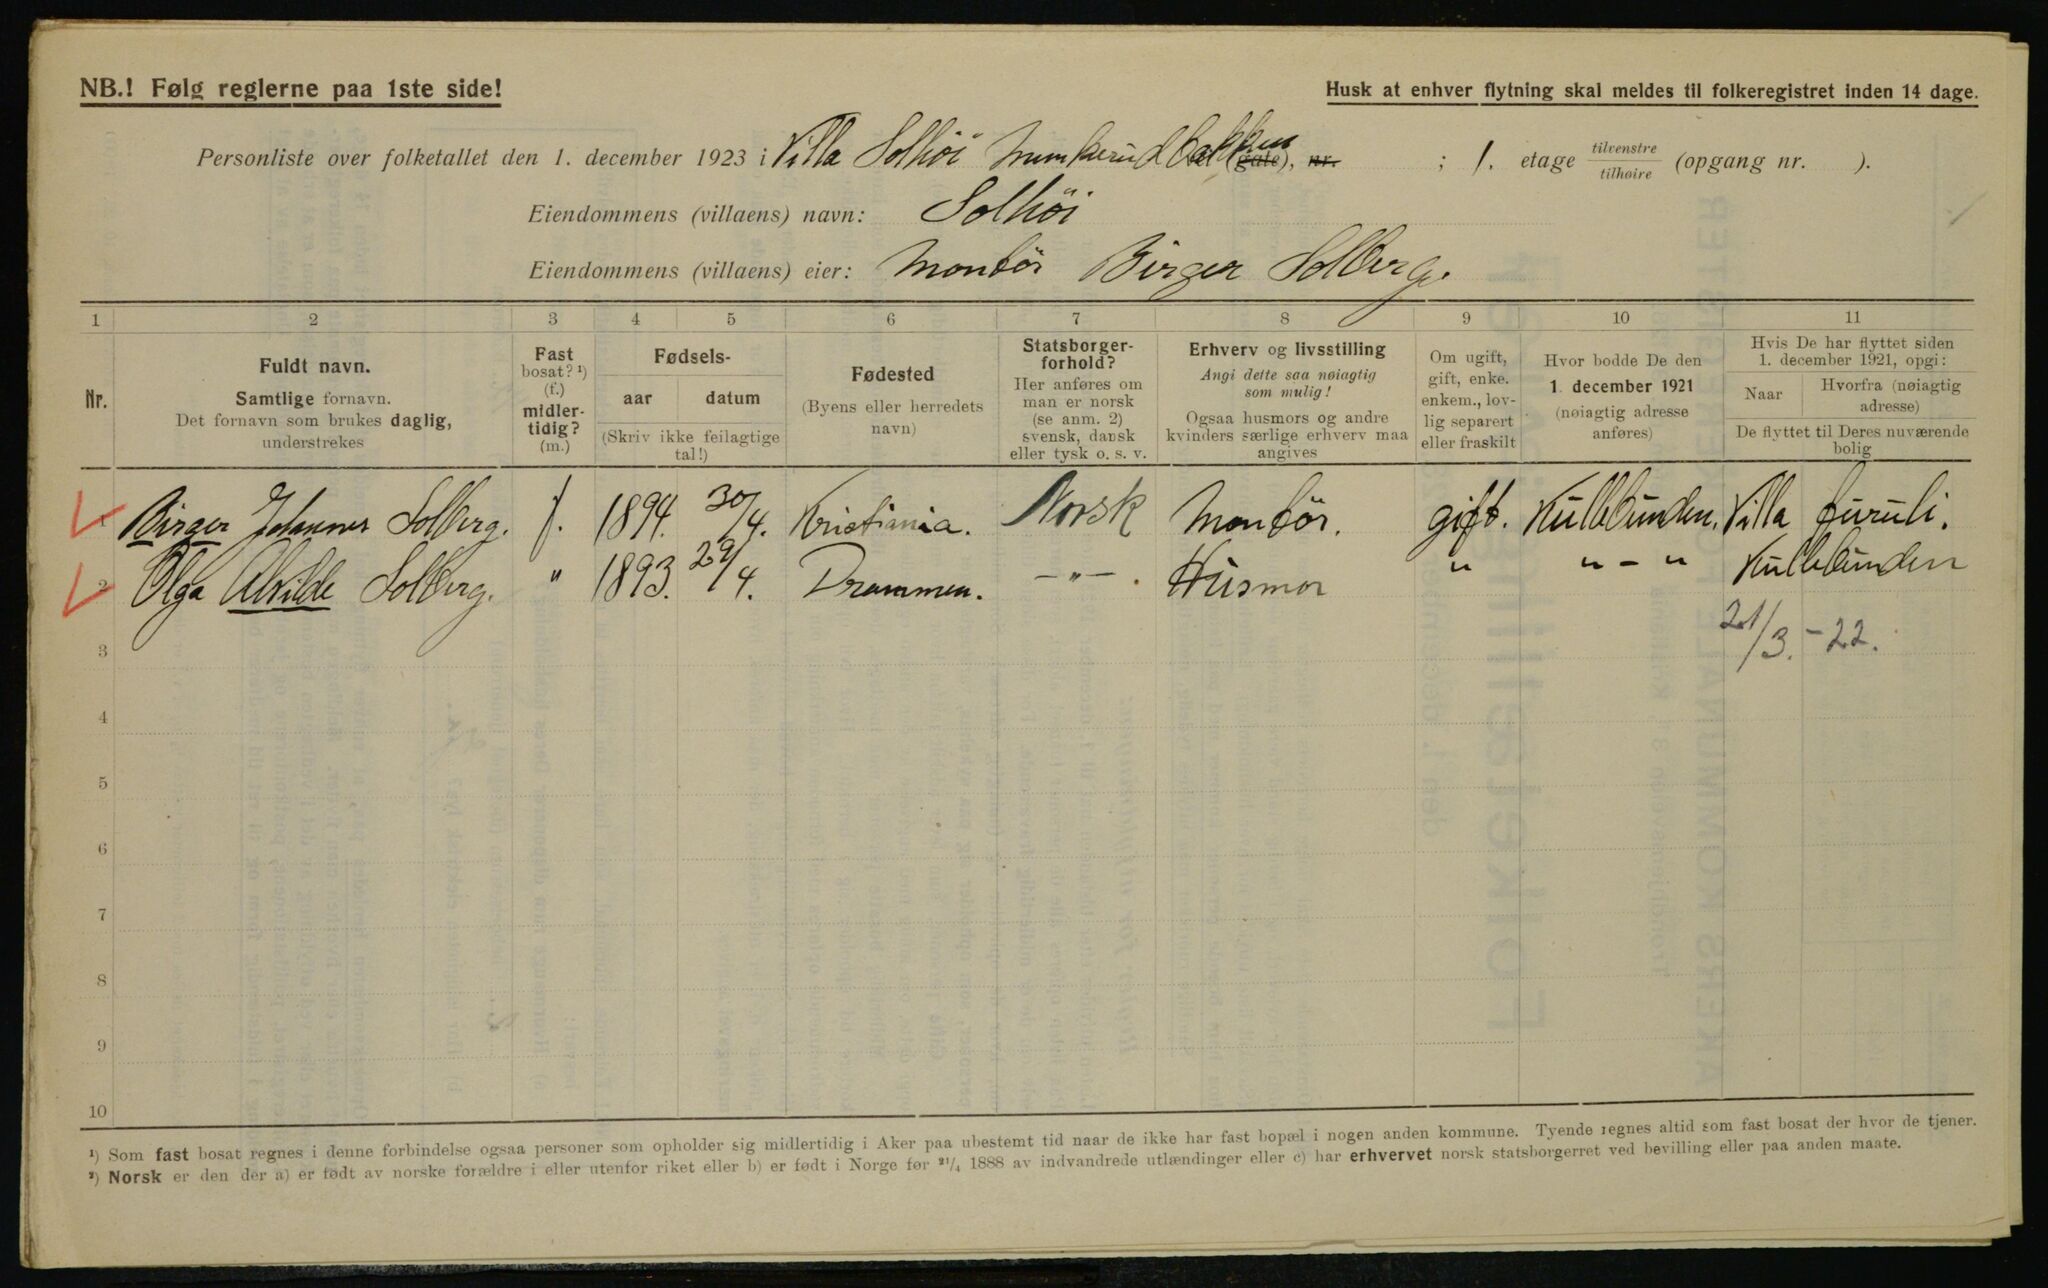 NB.! Følg reglerne paa 1ste side!
Husk at enhver flytning skal meldes til folkeregistret inden 14 dage.
Personliste over folketallet den 1. december 1923 i Villa Solhöi Munkerudbakken (gate), nr. ; 1. etage tilvenstre tilhøire (opgang nr. ).
Eiendommens (villaens) navn: Solhöi
Eiendommens (villaens) eier: Montör Birger Solberg.
1 2 3 4 5 6 7 8 9 10 11
Nr.
Fuldt navn.
Samtlige fornavn.
Det fornavn som brukes daglig,
understrekes
Fast
bosat? ¹)
(f.)
midler-
tidig?
(m.)
Fødsels-
aar datum
(Skriv ikke feilagtige
tal!)
Fødested
(Byens eller herredets
navn)
Statsborger-
forhold?
Her anføres om
man er norsk
(se anm. 2)
svensk, dansk
eller tysk o. s. v.
Erhverv og livsstilling
Angi dette saa nøiagtig
som mulig!
Ogsaa husmors og andre
kvinders særlige erhverv maa
angives
Om ugift,
gift, enke.
enkem., lov-
lig separert
eller fraskilt
Hvor bodde De den
1. december 1921
(nøiagtig adresse
anføres)
Hvis De har flyttet siden
1. december 1921, opgi:
Naar Hvorfra (nøiagtig
adresse)
De flyttet til Deres nuværende
bolig
1 Birger Johannes Solberg. f. 1894. 30/4. Kristiania. Norsk Montör. gift. Kullebunden. Villa Furuli.
2 Olga Alvilde Solberg. " 1893. 29/4. Drammen. -"- . Husmor " " - " Kullebunden
21/3. - 22.
3
4
5
6
7
8
9
10
¹) Som fast bosat regnes i denne forbindelse ogsaa personer som opholder sig midlertidig i Aker paa ubestemt tid naar de ikke har fast bopæl i nogen anden kommune. Tyende regnes altid som fast bosat der hvor de tjener.
²) Norsk er den der a) er født av norske forældre i eller utenfor riket eller b) er født i Norge før ²¹/₄ 1888 av indvandrede utlændinger eller c) har erhvervet norsk statsborgerret ved bevilling eller paa anden maate.